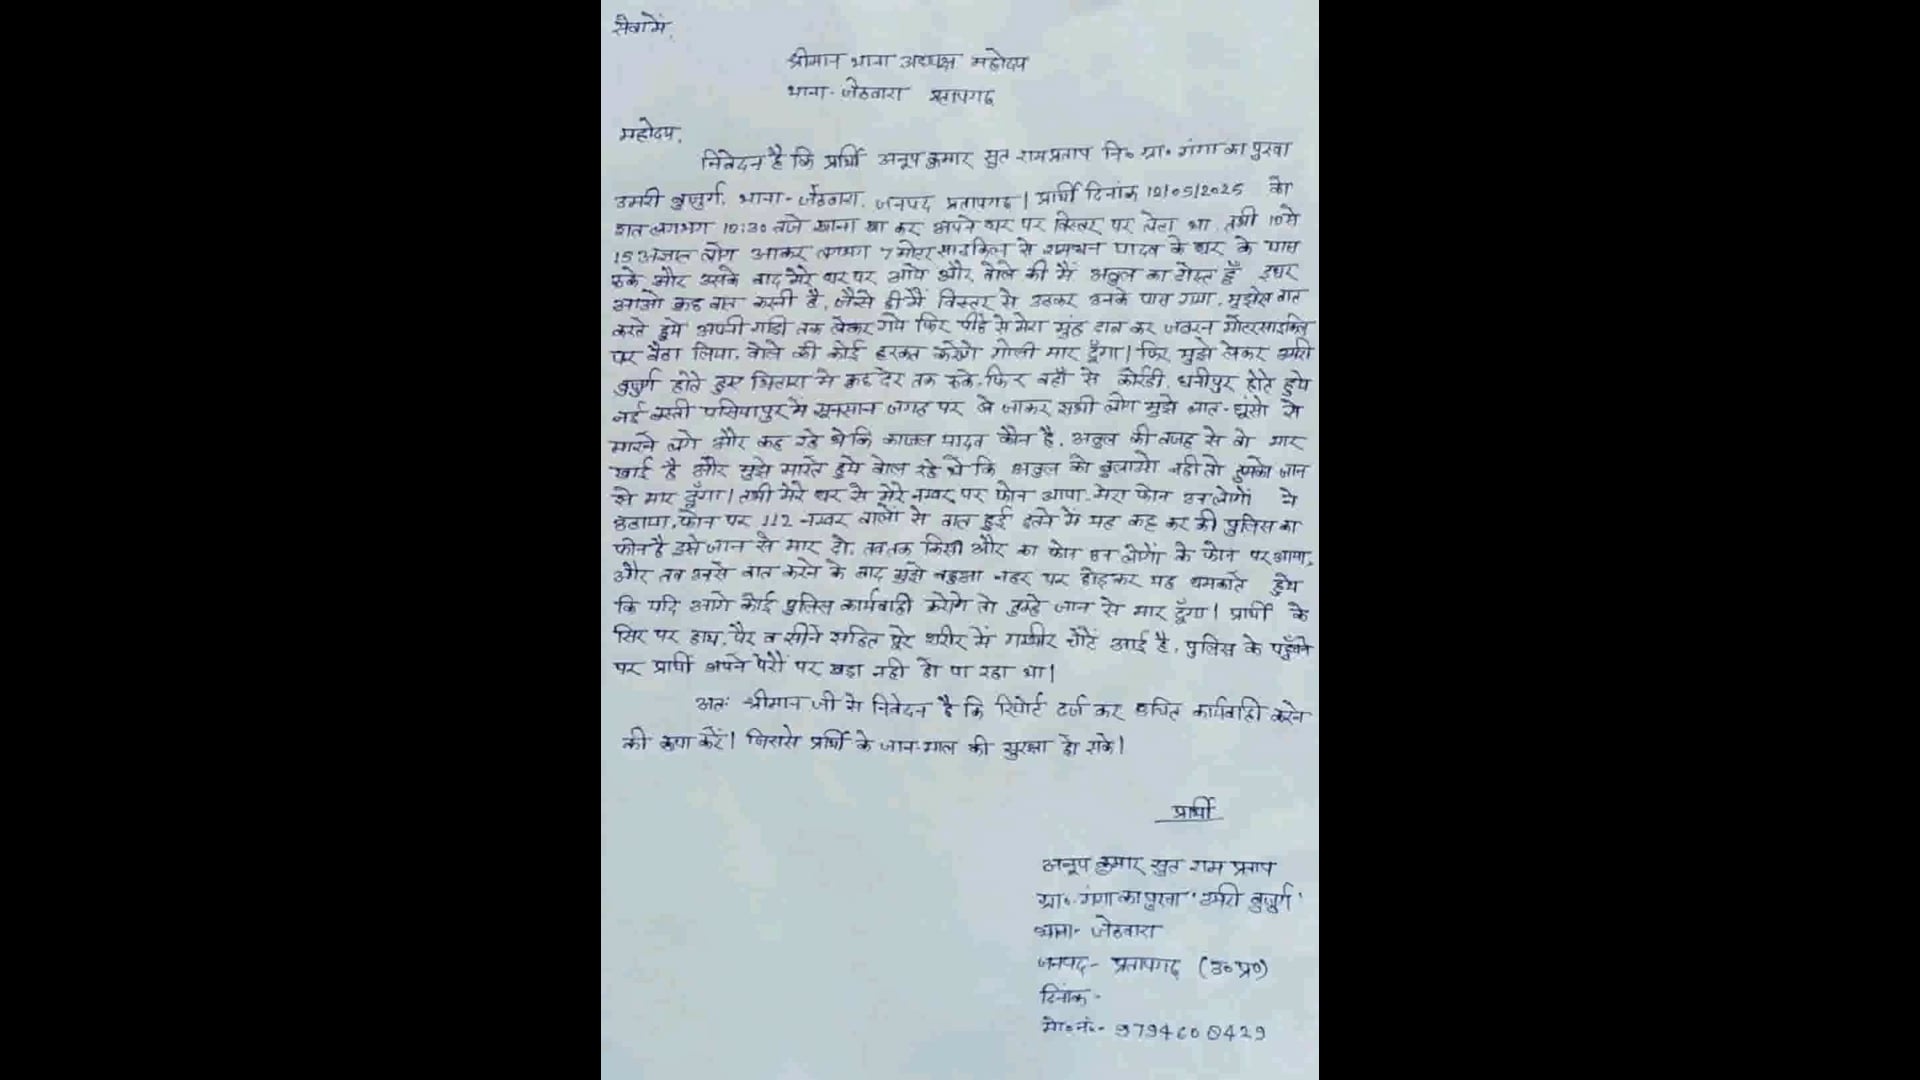 सेवामें,
श्रीमान थाना अध्यक्ष महोदय
थाना- जेठवारा प्रतापगढ़
महोदय,
निवेदन है कि प्रार्थी अनूप कुमार सुत रामप्रताप नि० ग्रा० गंगा का पुरवा
उमरी बुजुर्ग, थाना- जेठवारा, जनपद प्रतापगढ़। प्रार्थी दिनांक 12/05/2025 को
रात लगभग 10:30 बजे खाना खा कर अपने घर पर बिस्तर पर लेटा था, तभी 10 से
15 अज्ञात लोग आकर लगभग 7 मोटर साइकिल से यादव के घर के पास
रुके और उसके बाद मेरे घर पर आये और बोले की मैं अतुल का दोस्त हूँ इधर
आओ कुछ बात करनी है, जैसे ही मैं बिस्तर से उठकर उनके पास गया, मुझसे बात
करते हुये अपनी गाडी तक लेकर गये फिर पीछे से मेरा मुंह दाब कर जबरन मोटरसाइकिल
पर बैठा लिया, बोले की कोई हरकत करोगे गोली मार दूँगा। फिर मुझे लेकर उमरी
बुजुर्ग होते हुए भितारा मे कुछ देर तक रुके, फिर वहाँ से कोर्रही, धनीपुर होते हुये
नई बस्ती पसियापुर मे सूनसान जगह पर ले जाकर सभी लोग मुझे लात-घूंसो से
मारने लगे और कह रहे थे कि काजल यादव कौन है, अतुल की वजह से वो मार
खाई है और मुझे मारते हुये बोल रहे थे कि अतुल को बुलाओ नही तो तुमको जान
से मार दूँगा। तभी मेरे घर से मेरे नम्बर पर फोन आया, मेरा फोन उन लोगों ने
उठाया, फोन पर 112 नम्बर वालों से बात हुई इतने में यह कह कर की पुलिस का
फोन है इसे जान से मार दो, तब तक किसी और का फोन उन लोगों के फोन पर आया,
और तब उनसे बात करने के बाद मुझे नहर पर छोड़कर यह धमकाते हुये
कि यदि आगे कोई पुलिस कार्यवाही करोगे तो तुम्हे जान से मार दूँगा। प्रार्थी के
सिर पर हाथ, पैर व सीने सहित पूरे शरीर में गम्भीर चोटें आई है, पुलिस के पहुँचने
पर प्रार्थी अपने पैरों पर खड़ा नही हो पा रहा था।
अतः श्रीमान जी से निवेदन है कि रिपोर्ट दर्ज कर उचित कार्यवाही करने
की कृपा करें। जिससे प्रार्थी के जान-माल की सुरक्षा हो सके।
प्रार्थी
अनूप कुमार सुत राम प्रताप
ग्रा०- गंगा का पुरवा 'उमरी बुजुर्ग'
थाना- जेठवारा
जनपद- प्रतापगढ़ (उ० प्र०)
दिनांक -
मो० नं०- 9794600429